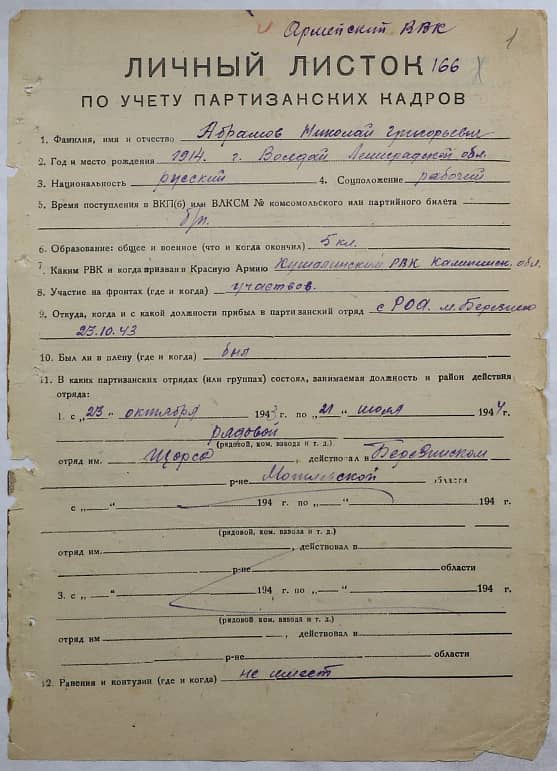 Армейский ВВК
1
ЛИЧНЫЙ ЛИСТОК 166
ПО УЧЕТУ ПАРТИЗАНСКИХ КАДРОВ
1. Фамилия, имя и отчество Абрамов Николай Григорьевич
2. Год и место рождения 1914. г. Волдай Ленинградской обл.
3. Национальность русский 4. Соцположение рабочий
5. Время поступления в ВКП(б) или ВЛКСМ № комсомольского или партийного билета
б/п.
6. Образование: общее и военное (что и когда окончил) 5 кл.
7. Каким РВК и когда призван в Красную Армию Кушалинским РВК Калининск. обл.
8. Участие на фронтах (где и когда) участвов.
9. Откуда, когда и с какой должности прибыл в партизанский отряд с РОА. м. Березино
23.10.43
10. Был ли в плену (где и когда) был
11. В каких партизанских отрядах (или группах) состоял, занимаемая должность и район действия
отряда:
1. с „23“ октября 1943 г. по „21“ июля 1944 г.
рядовой
(рядовой, ком. взвода и т. д.)
отряд им. Щорса, действовал в Березинском
р-не Могилевской области
с „ “ 194 г. по „ “ 194 г.
(рядовой, ком. взвода и т. д.)
отряд им. , действовал в
р-не области
3. с „ “ 194 г. по „ “ 194 г.
(рядовой, ком. взвода и т. д.)
отряд им , действовал в
р-не области
12. Ранения и контузии (где и когда) не имеет